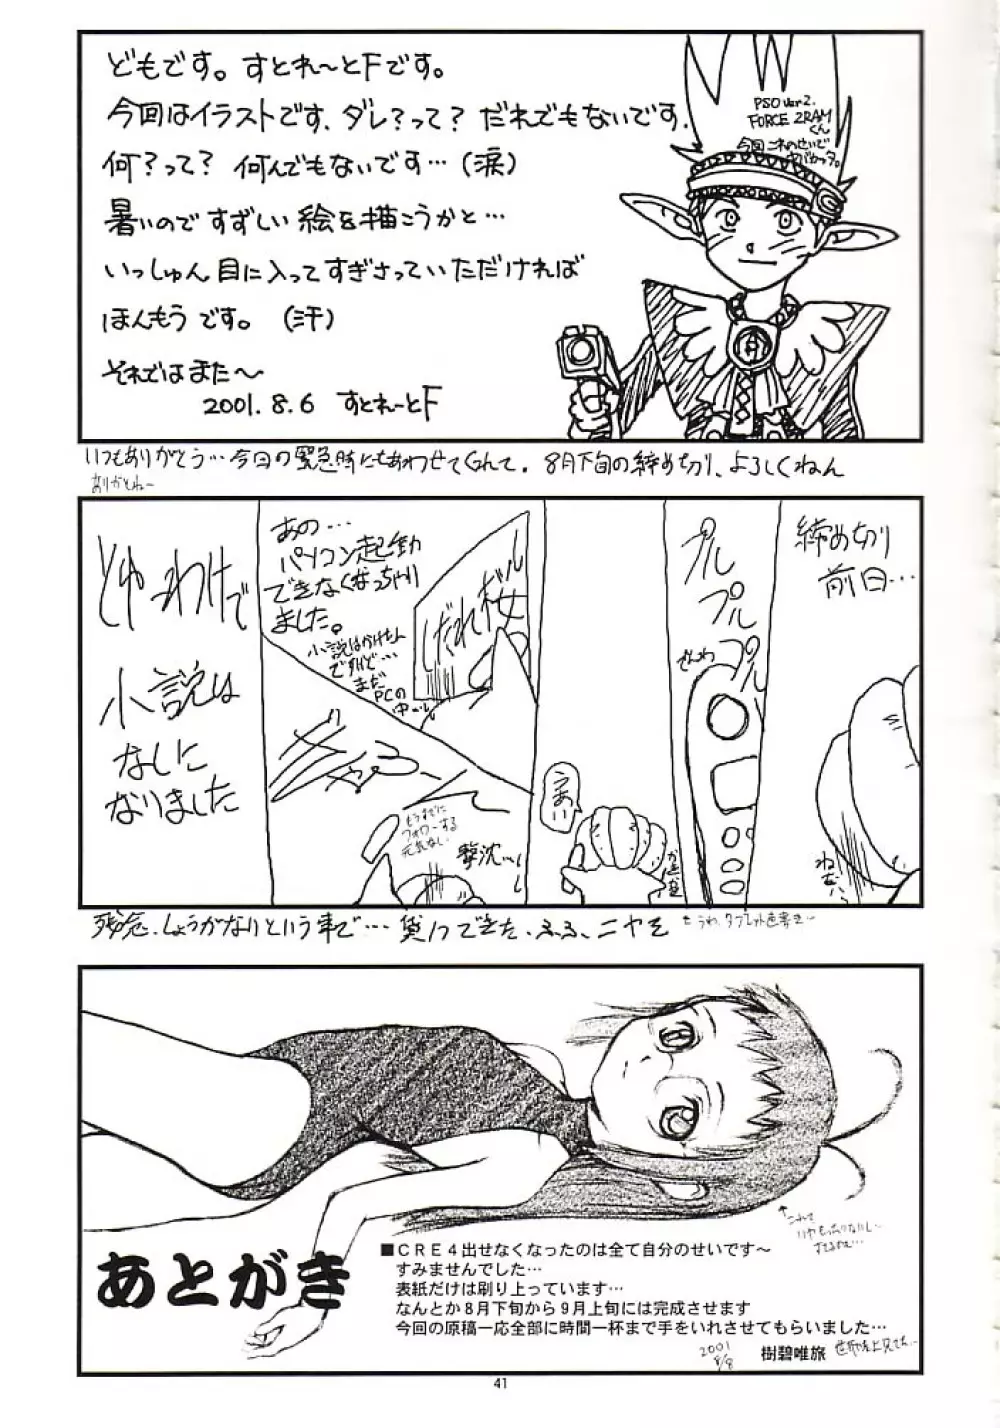 どもです。すとれ〜とFです。
今回はイラストです、ダレ?って? だれでもないです、
何?って? 何んでもないです…(涙)
暑いのですずしい絵を描こうかと…
いっしゅん目に入ってすぎさっていただければ
ほんもうです。(汗)
それではまた〜
2001.8.6 すとれーとF
PSO ver2.
FORCE 2RAM
くん
今回これのせいで
ヤバかッタ。
いつもありがとう…今回の緊急時にもあわせてくれて。8月下旬の締め切り、よろしくねん
ありがとね〜
締め切り
前日…
ねむい、
プル
プル
プル
でんわ
うあい
がちゃ
あの…
パソコン起動
できなくなっちゃり
ました。
小説はかけたん
ですけど…
まだ
PCの
中
しだれ桜
ぎゃふーん
もうすでに
フォローする
元気ない
撃沈…
とゆーわけで
小説は
なしに
なりました
残念、しょうがないという事で…貸1つできた、ふふ、ニヤそ
■CRE4出せなくなったのは全て自分のせいです〜
すみませんでした…
表紙だけは刷り上っています…
なんとか8月下旬から9月上旬には完成させます
今回の原稿一応全部に時間一杯まで手をいれさせてもらいました…
2001
8/8
樹碧唯旅
あとがき
41